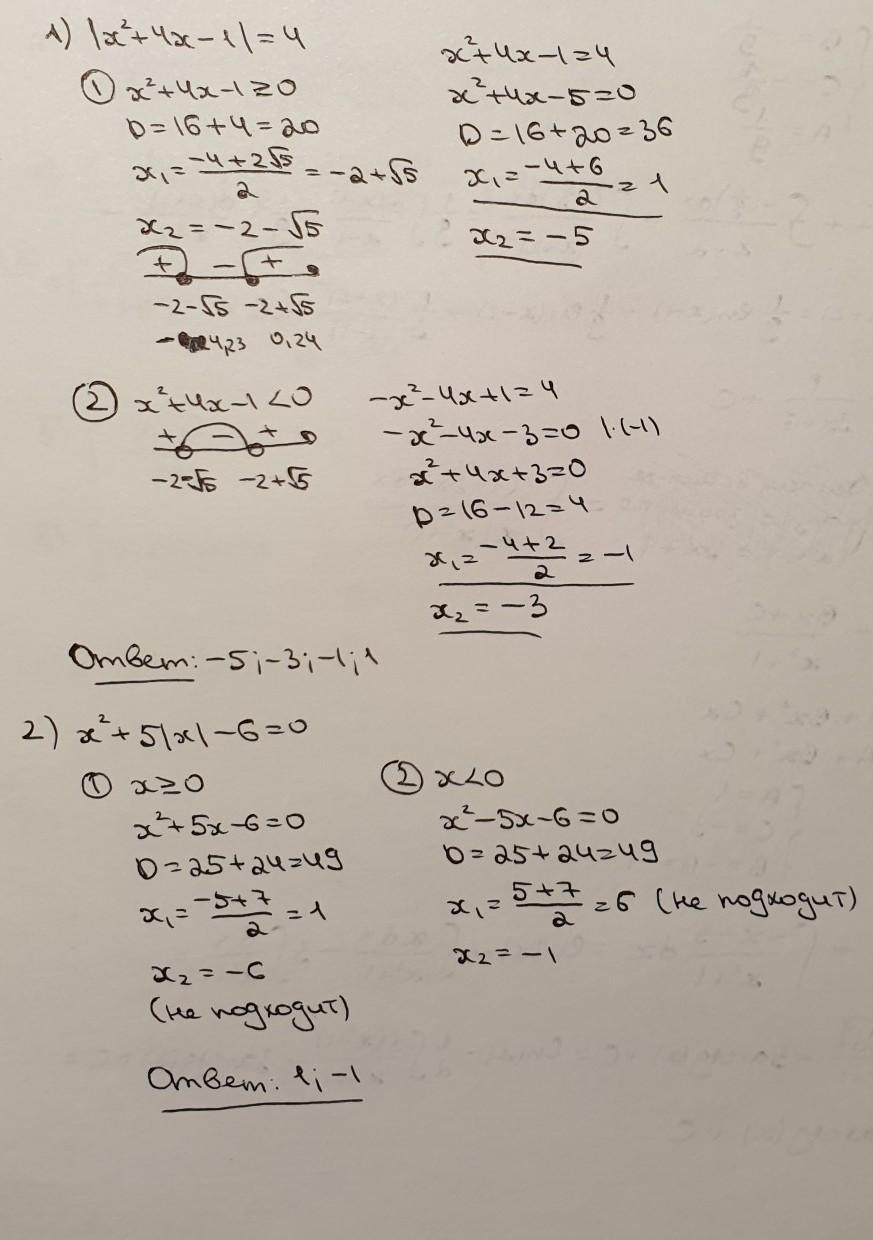 1) |x²+4x-1|=4
① x²+4x-1≥0
D=16+4=20
x₁=(-4+2√5)/2=-2+√5
x₂=-2-√5
+ - +
-2-√5 -2+√5
-4,23 0,24
x²+4x-1=4
x²+4x-5=0
D=16+20=36
x₁=(-4+6)/2=1
x₂=-5
② x²+4x-1<0
+ - +
-2-√5 -2+√5
-x²-4x+1=4
-x²-4x-3=0 |·(-1)
x²+4x+3=0
D=16-12=4
x₁=(-4+2)/2=-1
x₂=-3
Ответ: -5;-3;-1;1
2) x²+5|x|-6=0
① x≥0
x²+5x-6=0
D=25+24=49
x₁=(-5+7)/2=1
x₂=-6
(не подходит)
② x<0
x²-5x-6=0
D=25+24=49
x₁=(5+7)/2=6 (не подходит)
x₂=-1
Ответ: 1;-1